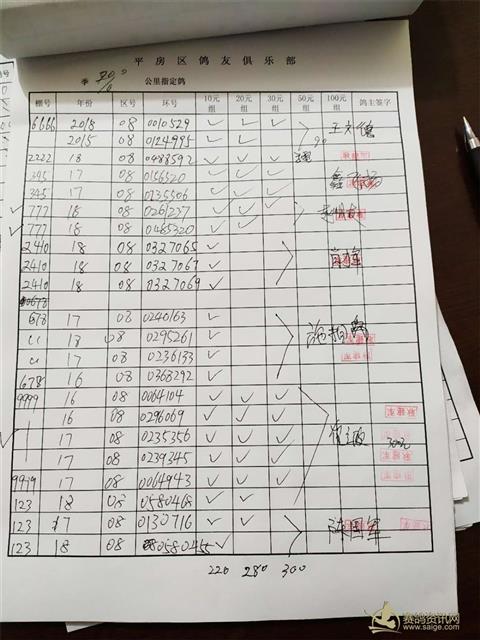 平房区鸽友俱乐部
季 公里指定鸽
棚号 年份 区号 环号 10元组 20元组 30元组 50元组 100元组 鸽主签字
6666 2018 08 0010529 ✓ ✓ ✓
2015 08 0124995 ✓ ✓ 90
2222 18 08 0483592 ✓ ✓ ✓
345 17 08 0156520 ✓ ✓ ✓
345 17 08 0135506 ✓ ✓ ✓
777 18 08 0261227 ✓ ✓ ✓
777 18 08 0465320 ✓ ✓ ✓
2410 18 08 0327065 ✓
2410 18 08 0327067 ✓
2410 18 08 0327069 ✓
678 17 08 0240163 ✓
" 18 08 0295261 ✓
" 17 08 0236133 ✓
678 16 08 0368292 ✓
9999 16 08 0064104 ✓ ✓ ✓
16 08 0296069 ✓ ✓ ✓
17 08 0235356 ✓ ✓ ✓
17 08 0239345 ✓ ✓ ✓
9999 17 08 0064943 ✓ ✓ ✓
123 18 08 0580468 ✓ ✓
123 17 08 0130716 ✓ ✓
123 18 08 0580455 ✓
220 280 300
赛鸽资讯网
www.saige.com